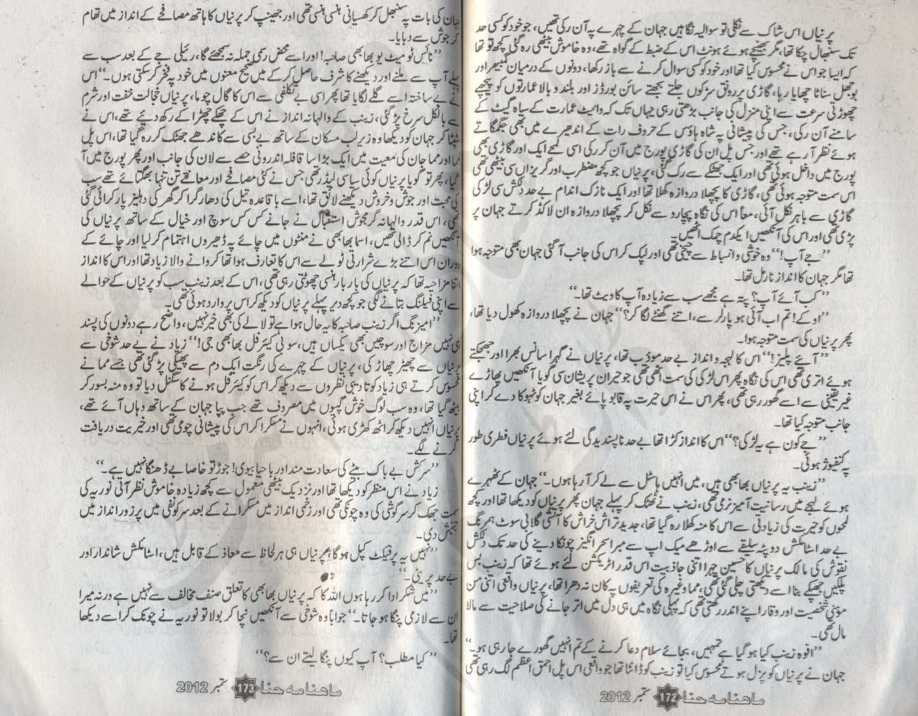 پرنیاں اس شاک سے نکلی تو سوالیہ نگاہیں جہان کے چہرے پہ آن رکی تھیں، جو خود کو کسی حد
تک سنبھال چکا تھا، مگر بھنچے ہوئے ہونٹ اس کے ضبط کے گواہ تھے، وہ خاموش بیٹھی رہ گئی کچھ تو تھا
کہ ایسا جو اس نے محسوس کیا تھا اور خود کو کسی سوال کرنے سے باز رکھا، دونوں کے درمیان گھمبیر اور
بوجھل سناٹا چھایا رہا، گاڑی پر رونق سڑکوں جلتے بجھتے سائن بورڈز اور بلند و بالا عمارتوں کو پیچھے
چھوڑتی سرعت سے اپنی منزل کی جانب بڑھتی رہی یہاں تک کہ وائٹ عمارت کے سیاہ گیٹ کے
سامنے آن رکی، جس کی پیشانی پہ شاہ ہاؤس کے حروف رات کے اندھیرے میں بھی جگمگاتے
ہوئے نظر آ رہے تھے اور جس پل ان کی گاڑی پورچ میں آن کر رکی اسی لمحے ایک اور گاڑی بھی
پورچ میں داخل ہوئی تھی اور ایک جھٹکے سے رک گئی، پرنیاں جو کچھ مضطرب اور گریزاں سی بیٹھی تھی
اس سمت متوجہ ہوئی تھی، گاڑی کا پچھلا دروازہ کھلا تھا اور ایک نازک اندام بے حد دلکش سی لڑکی
گاڑی سے باہر نکل آئی، معاً اس کی نگاہ پجارو سے نکل کر پچھلا دروازہ ان لاکڈ کرتے جہان پر
پڑی تھی اور اس کی آنکھیں ایکدم چمک اٹھیں۔
’’جے آپ!‘‘ وہ خوشی و انبساط سے چیخی تھی اور لپک کر اس کی جانب آ گئی جہان بھی متوجہ ہوا
تھا مگر جہان کا انداز نارمل تھا۔
’’کب آئے آپ؟ پتہ ہے مجھے سب سے زیادہ آپ کا ویٹ تھا۔‘‘
’’اوکے! تم اب آئی ہو پارلر سے، اتنے گھنٹے لگا کر؟‘‘ جہان نے پچھلا دروازہ کھول دیا تھا،
پھر پرنیاں کی سمت متوجہ ہوا۔
’’آیئے پلیز!‘‘ اس کا لہجہ و انداز بے حد مودب تھا، پرنیاں نے گہرا سانس بھرا اور جھجکتے
ہوئے اتری تھی اس کی نگاہ پھر اس لڑکی کی سمت اٹھی تھی جو حیران پریشان سی گویا آنکھیں پھاڑے
غیر یقینی سے اسے گھور رہی تھی، پھر اس نے اس حیرت پہ قابو پائے بغیر جہان کو ٹہوکا دے کر اپنی
جانب متوجہ کیا تھا۔
’’جے کون ہے یہ لڑکی؟‘‘ اس کا انداز کڑا تھا بے حد ناپسندیدگی لئے ہوئے پرنیاں فطری طور
پہ کنفیوژ ہوئی۔
’’زینب یہ پرنیاں بھابھی ہیں، میں انہیں ہاسٹل سے لے کر آ رہا ہوں۔‘‘ جہان کے ٹھہرے
ہوئے لہجے میں رسانیت آمیز نرمی تھی، زینب نے ٹھٹک کر پہلے جہان پھر پرنیاں کو دیکھا تھا اور کچھ
لمحوں کو حیرت کی زیادتی سے اس کا منہ کھلا رہ گیا تھا، جدید تراش خراش کا آتشی گلابی سوٹ ہمرنگ
بے حد اسٹائلش دوپٹہ سلیقے سے اوڑھے میک اپ سے مبرا سحر انگیز چونکا دینے کی حد تک دلکش
نقوش کی مالک پرنیاں کا حسین چہرا اتنی جاذبیت اس قدر اٹریکشن لئے ہوئے تھا کہ زینب بس
پلکیں جھپکے بنا اسے دیکھتی چلی گئی تھی، مما وغیرہ کی تعریفوں پہ کان نہ دھرا تھا، پرنیاں واقعی اتنی من
موہنی شخصیت اور وقار اپنے اندر رکھتی تھی کہ پہلی نگاہ میں ہی دل میں اتر جانے کی صلاحیت سے مالا
مال تھی۔
’’افوہ زینب کیا ہو گیا ہے تمہیں، بجائے سلام دعا کرنے کے تم انہیں گھورے جا رہی ہو۔‘‘
جہان نے پرنیاں کو نزل ہوتے محسوس کیا تو زینب کو ڈانٹا تھا جو واقعی اس پل احمق اعظم لگ رہی تھی
ماہنامہ حنا 172 ستمبر 2012
جہان کی بات پہ سنبھل کر کھسیانی ہنسی ہنسی تھی اور جھینپ کر پرنیاں کا ہاتھ مصافحے کے انداز میں تھام
کر جوش سے دبایا۔
’’نائس ٹو میٹ یو بھابھی صاحبہ! اور اسے محض رسمی جملہ نہ سمجھئے گا، رئیلی جے کے بعد سب سے
پہلے آپ سے ملنے اور دیکھنے کا شرف حاصل کر کے میں صحیح معنوں میں خود پہ فخر کر سکتی ہوں۔‘‘ اس
نے بے ساختہ اسے گلے لگایا تھا پھر اسی بے تکلفی سے اس کا گال چوما، پرنیاں خجالت خفت اور شرم
سے بالکل سرخ پڑ گئی، زینب کے والہانہ انداز نے اس کے چھکے چھڑا کے رکھ دیئے تھے، اس نے
سٹپٹا کر جہان کو دیکھا وہ زیر لب مسکان کے ساتھ بے بسی سے کاندھے جھٹک کر رہ گیا تھا، اس پل
مما اور مما جان کی معیت میں ایک بڑا سا قافلہ اندرونی حصے سے لان کی جانب اور پھر پورچ میں آ
گیا، پھر تو گویا پرنیاں کوئی سیاسی لیڈر تھی جس نے کئی مصافحے اور معانقے تن تنہا بھگتائے تھے سب
کی محبت اور جوش و خروش دیکھنے لائق تھا، اسے با قاعدہ تیل کی دھار گرا کر گھر کی دہلیز پار کرائی گئی
تھی، اس قدر والہانہ گرمجوش استقبال نے جانے کس کس سوچ اور خیال کے ساتھ پرنیاں کی
آنکھیں نم کر ڈالی تھیں، اسما بھابھی نے منٹوں میں چائے پہ ڈھیروں اہتمام کر لیا اور چائے کے
دوران اس اتنے بڑے شرارتی ٹولے سے اس کا تعارف ہوا تھا کروانے والا زیاد تھا اور اس کا انداز
اتنا مزاحیہ تھا کہ پرنیاں کی بار بار ہنسی چھوٹتی رہی تھی، اس کے بعد زینب سب کو پرنیاں کے حوالے
سے اپنی فیلنگ بتانے لگی جو کچھ دیر پہلے پرنیاں کو دیکھ کر اس پر وارد ہوئی تھی۔
’’امیزنگ اگر زینب صاحبہ کا یہ حال ہوا ہے تو لالے کی بھی خیر نہیں، واضح رہے دونوں کی پسند
ہی نہیں مزاج اور سوچیں بھی یکساں ہیں، سو بی کیئر فل بھابھی جی!‘‘ زیاد نے بے حد شوخی سے
پرنیاں سے چھیڑ چھاڑ کی، پرنیاں کے چہرے کی رنگت ایک دم سے پھیکی پڑ گئی تھی جسے ممانے
محسوس کرتے ہی زیاد کو تادیبی نظروں سے دیکھ کر اس کو کیئر فل ہونے کا سگنل دیا تو وہ منہ بسور کر
بیٹھ گیا تھا، وہ سب لوگ خوش گپیوں میں مصروف تھے جب پپا جہان کے ساتھ وہاں آئے تھے،
پرنیاں انہیں دیکھ کر اٹھ کھڑی ہوئی، انہوں نے مسکرا کر اس کی پیشانی چومی تھی اور خیریت دریافت
کرنے لگے۔
’’سرکش بے باک بیٹے کی سعادت مند اور باحیا بیوی! جوڑ تو خاصا بے ڈھنگا نہیں ہے۔‘‘
زیاد نے اس منظر کو دیکھا تھا اور نزدیک بیٹھی معمول سے کچھ زیادہ خاموش نظر آتی نوریہ کی
سمت جھک کر سرگوشی کی وہ چونکی تھی اور زخمی انداز میں مسکرانے کے بعد سر کو نفی میں پر زور انداز میں
جنبش دی۔
’’نہیں یہ پرفیکٹ کپل ہو گا، پرنیاں ہی ہر لحاظ سے معاذ کے قابل ہیں، اسٹائلش شاندار اور
بے حد پریٹی۔‘‘
’’میں شکر ادا کر رہا ہوں اللہ کا کہ پرنیاں بھابھی کا تعلق صنف مخالف سے نہیں ہے ورنہ میرا
ان سے لازمی پنگا ہو جاتا۔‘‘ جواباً وہ شوخی سے آنکھیں نچا کر بولا تو نوریہ نے چونک کر اسے دیکھا
تھا۔
’’کیا مطلب؟ آپ کیوں پنگا لیتے ان سے؟‘‘
ماہنامہ حنا 173 ستمبر 2012